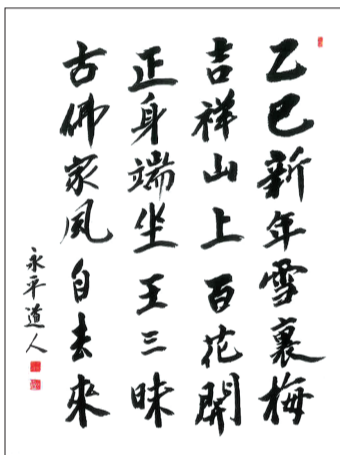 乙巳新年雪裏梅
吉祥山上百花開
正身端坐王三昧
古佛家風自去來
永平道人